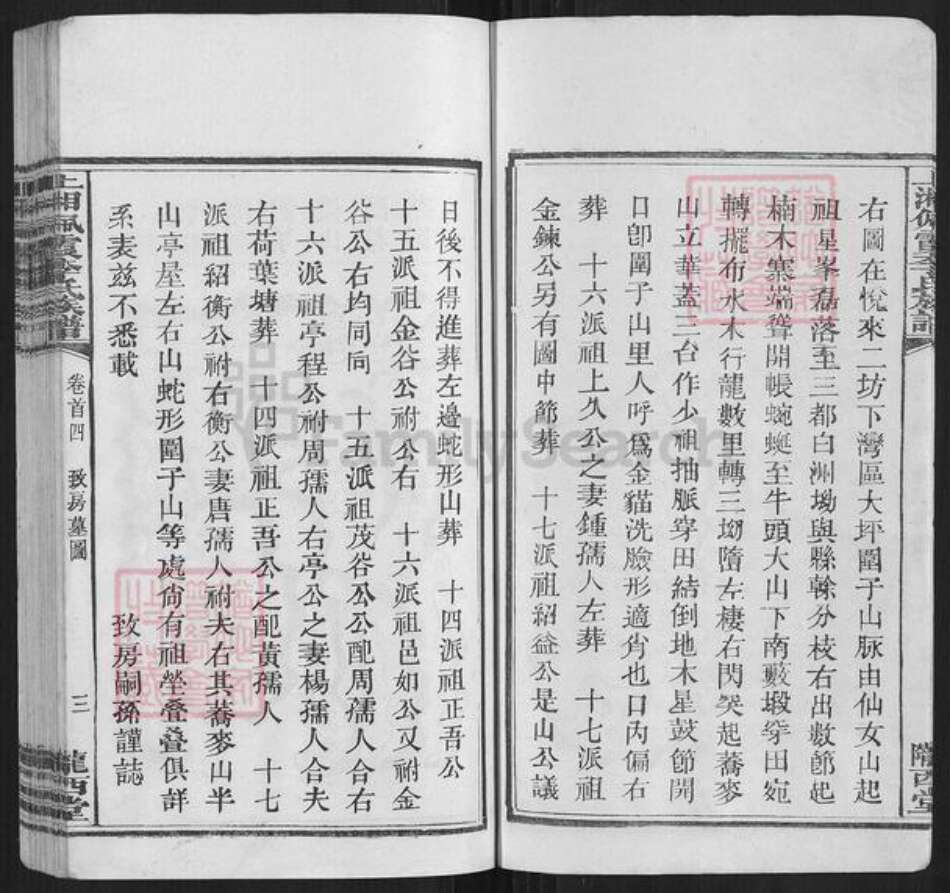 右圖在悅來二坊下灣區大坪圍子山脉由仙女山起
祖星峯磊落至三都白洲坳與縣榦分枝右出數節起
楠木寨端聳開帳蜿蜒至牛頭大山下南藪塅穿田宛
轉擺布水木行龍數里轉三坳隋左棲右閃突起蕎麥
山立華蓋三台作少祖抽脈穿田結倒地木星鼓節開
口卽圍子山里人呼爲金貓洗臉形適肖也口內偏右
葬　十六派祖上久公之妻鍾孺人左葬　十七派祖
金鍊公另有圖中節葬　十七派祖紹益公是山公議
隴西堂
日後不得進葬左邊蛇形山葬　十四派祖正吾公
十五派祖金谷公祔公右　十六派祖邑如公又祔金
谷公右均同向　十五派祖茂谷公公配周孺人合右
十六派祖亭程公祔周孺人右亭公之妻楊孺人合夫
右荷葉塘葬　十四派祖正吾公之配黃孺人　十七
派祖紹衡公祔右衡公妻唐孺人祔夫右其蕎麥山半
山亭屋左右山蛇形圍子山等處尙有祖塋叠叠俱詳
系表茲不悉載
致房嗣孫謹誌
上湘佩霞李氏族譜
卷首四　致房墓圖
三
隴西堂
FamilySearch